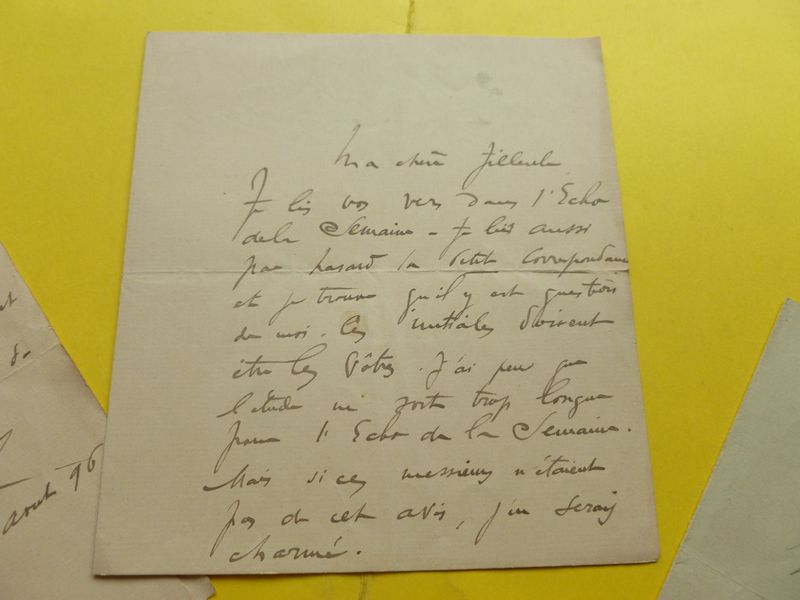 Ma chère filleule,
Je lis vos vers dans l'Echo
de la Semaine - Je lis aussi
par hasard la Petite Correspondance
et je trouve qu'il y est question
de moi. les initiales doivent
être les vôtres. J'ai peur que
l'étude ne soit trop longue
pour l'Echo de la Semaine.
Mais si ces messieurs n'étaient
pas de cet avis, j'en serais
charmé.
août 96